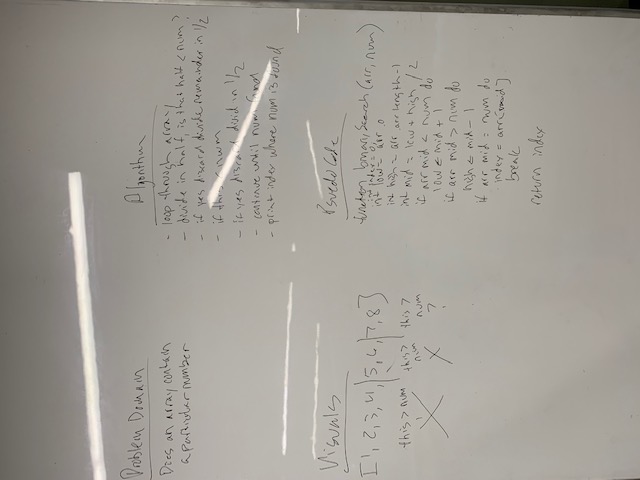 Problem Domain
Does an array contain
a particular number
Algorithm
- loop through array
- divide in half, is that half < num?
- if yes discard divide remainder in 1/2
- if this < num
- if yes discard divid in 1/2
- continue until num found
- print index where num is found
Visuals
[1, 2, 3, 4, | 5, 6, | 7, 8]
this > num
this >
num
this >
num
?
Psuedo Code
function binarySearch (arr, num)
int index = 0;
int low = arr 0
int high = arr arr length-1
int mid = low + high / 2
if arr mid < num do
low ≤ mid + 1
if arr mid > num do
high ≤ mid - 1
if arr mid = num do
index = arr[mid]
break
return index